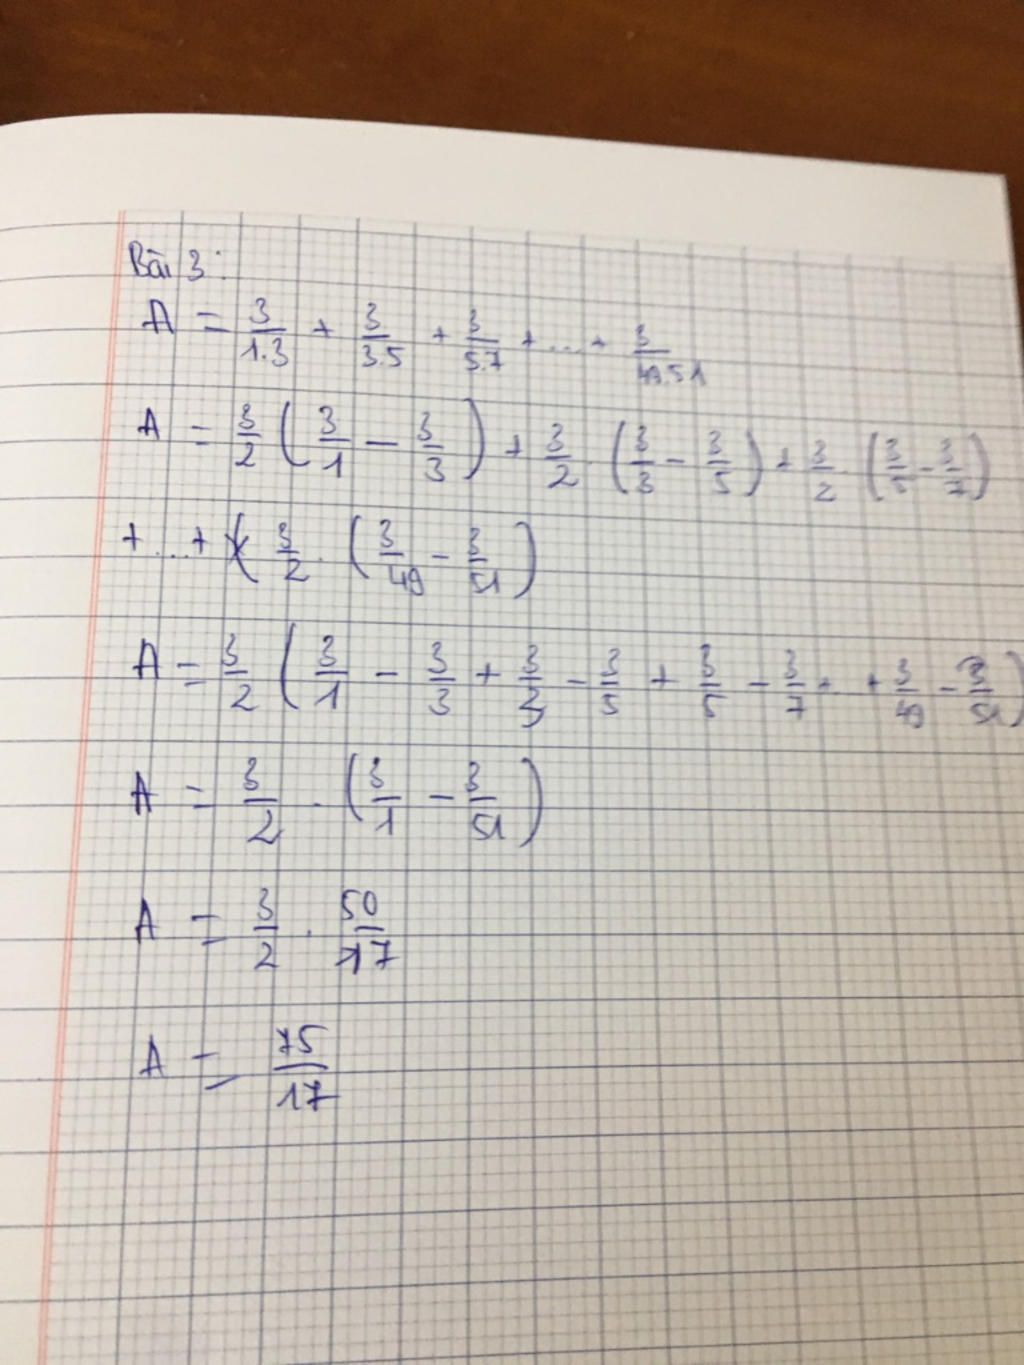 Bài 3:
A = 3/1.3 + 3/3.5 + 3/5.7 + ... + 3/49.51
A = 3/2 (3/1 - 3/3) + 3/2 . (3/3 - 3/5) + 3/2 . (3/5 - 3/7)
+ ... + 3/2 . (3/49 - 3/51)
A = 3/2 (3/1 - 3/3 + 3/3 - 3/5 + 3/5 - 3/7 + .. + 3/49 - 3/51)
A = 3/2 . (3/1 - 3/51)
A = 3/2 . 50/17
A = 75/17